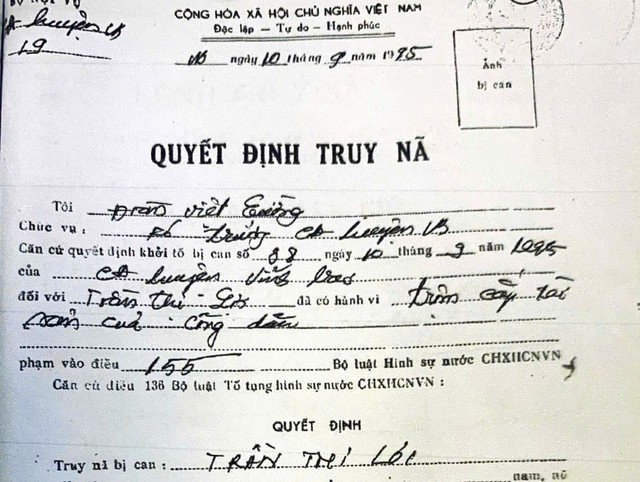 CỘNG HÒA XÃ HỘI CHỦ NGHĨA VIỆT NAM
CA huyện VB
Độc lập — Tự do — Hạnh phúc
19
VB ngày 10 tháng 9 năm 1995
Ảnh
bị can
QUYẾT ĐỊNH TRUY NÃ
Tôi Đoàn Việt
Chức vụ: trưởng CA huyện VB
Căn cứ quyết định khởi tố bị can số 88 ngày 10 tháng 9 năm 1995
của CA huyện Vĩnh Bảo
đối với Trần Thị Lóc đã có hành vi trộm cắp tài
sản của công dân
phạm vào điều 155 Bộ luật Hình sự nước CHXHCNVN
Căn cứ điều 136 Bộ luật Tố tụng hình sự nước CHXHCNVN:
QUYẾT ĐỊNH
Truy nã bị can: TRẦN THỊ LÓC
nam, nữ